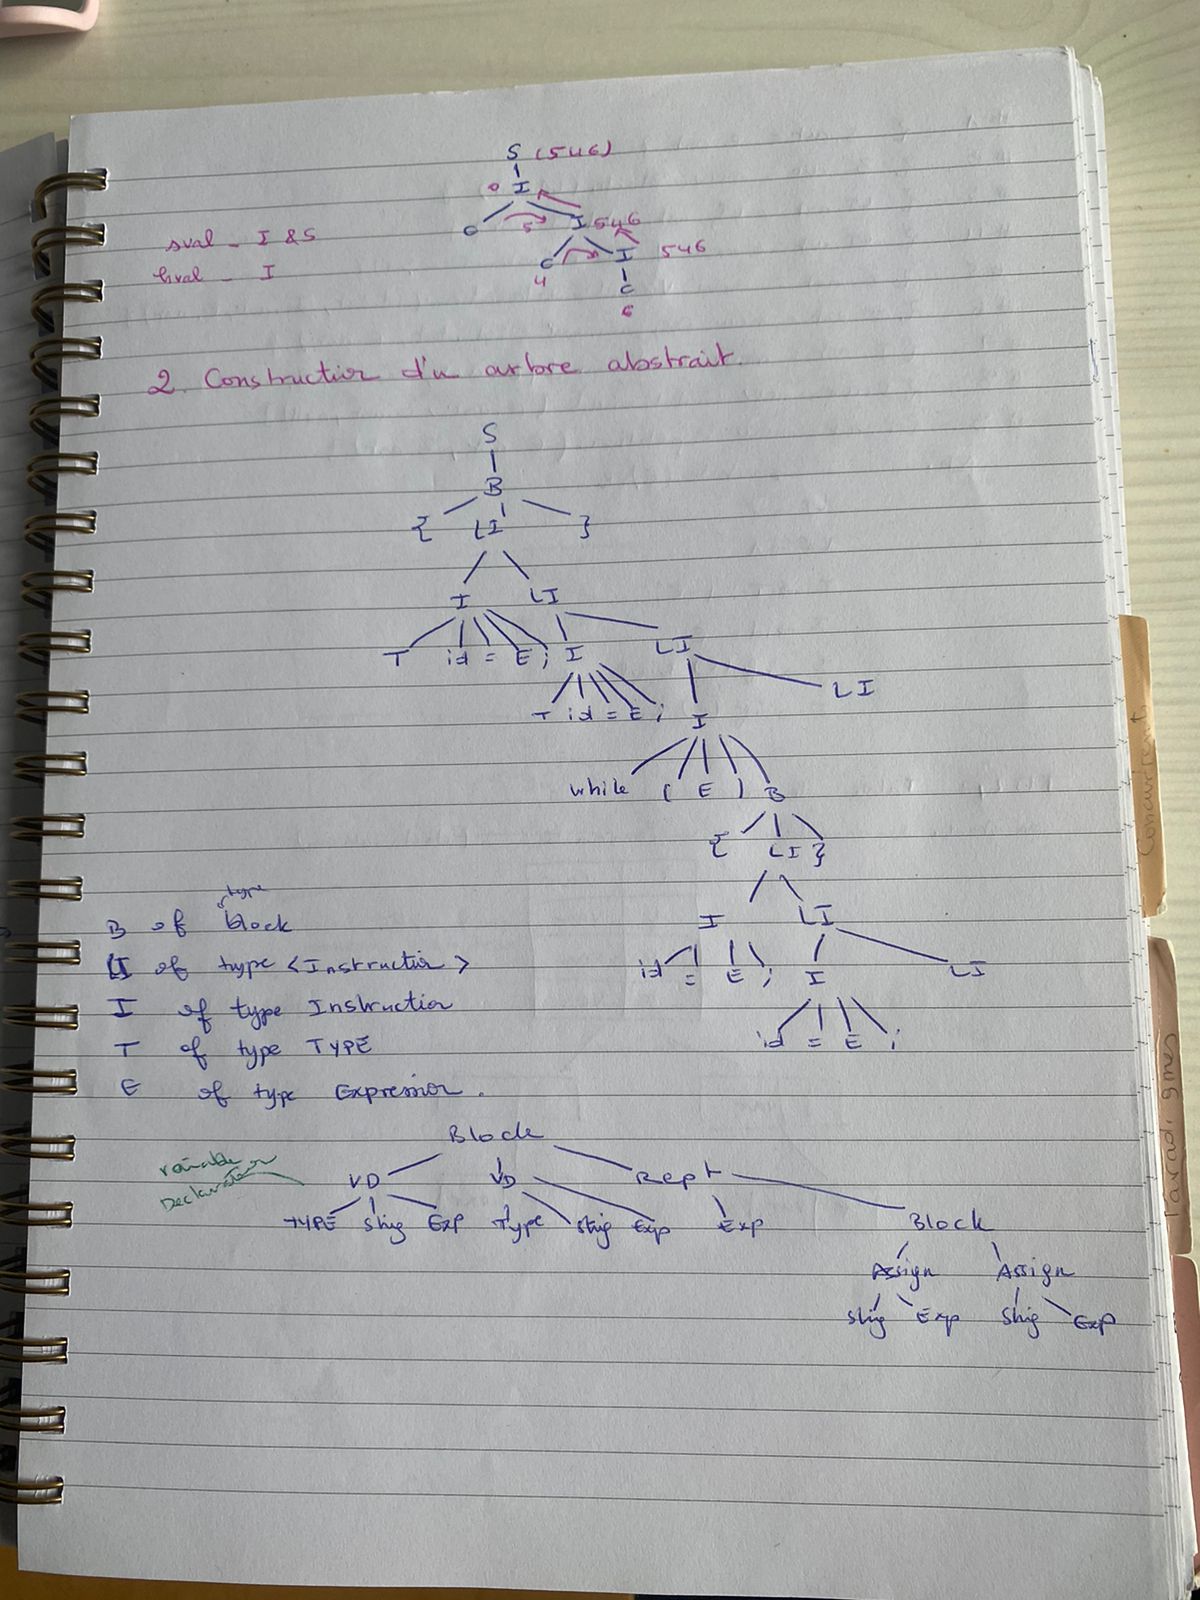 S (546)
0 I
C 5 I 546
sval - I & S
C I 546
hval - I
4 C
6
2. Construction d'un arbre abstrait.
S
B
{ LI }
I LI
T id = E ; I LI
LI
T id = E ; I
while ( E ) B
{ LI }
type
B of block
I LI
LI of type <Instruction>
id = E ; I LI
I of type Instruction
T of type TYPE
id = E ;
E of type Expression.
Block
variable
Declaration
VD VD Rept
TYPE String Exp Type String Exp Exp Block
Assign Assign
String Exp String Exp
Concurrent
Paradigmes